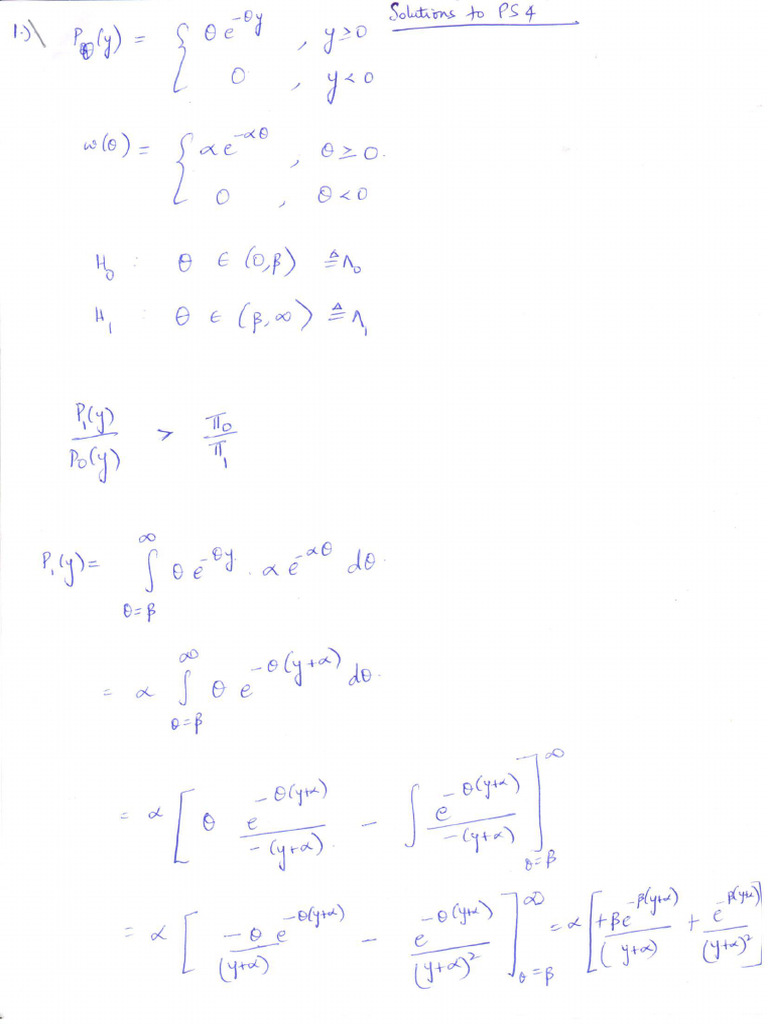 Solutions to PS4
1.) P_θ(y) = { θ e^{-θy} , y≥0
0 , y<0
w(θ) = { α e^{-αθ} , θ ≥ 0.
0 , θ<0
H_0 : θ ∈ (0,β) ≜ Λ_0
H_1 : θ ∈ (β,∞) ≜ Λ_1
P_1(y) / P_0(y) > π_0 / π_1
P_1(y) = ∫_{θ=β}^{∞} θ e^{-θy} . α e^{-αθ} dθ.
= α ∫_{θ=β}^{∞} θ e^{-θ(y+α)} dθ.
= α [ θ e^{-θ(y+α)} / -(y+α) - ∫ e^{-θ(y+α)} / -(y+α) ]_{θ=β}^{∞}
= α [ -θ e^{-θ(y+α)} / (y+α) - e^{-θ(y+α)} / (y+α)² ]_{θ=β}^{∞} = α [ +β e^{-β(y+α)} / (y+α) + e^{-β(y+α)} / (y+α)² ]